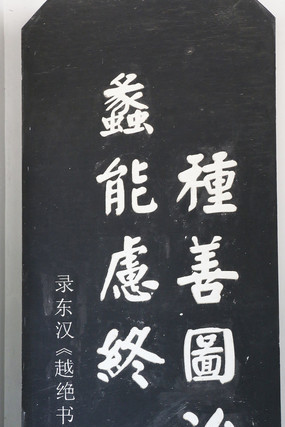 種善圖
蠡能慮終
录东汉《越绝书